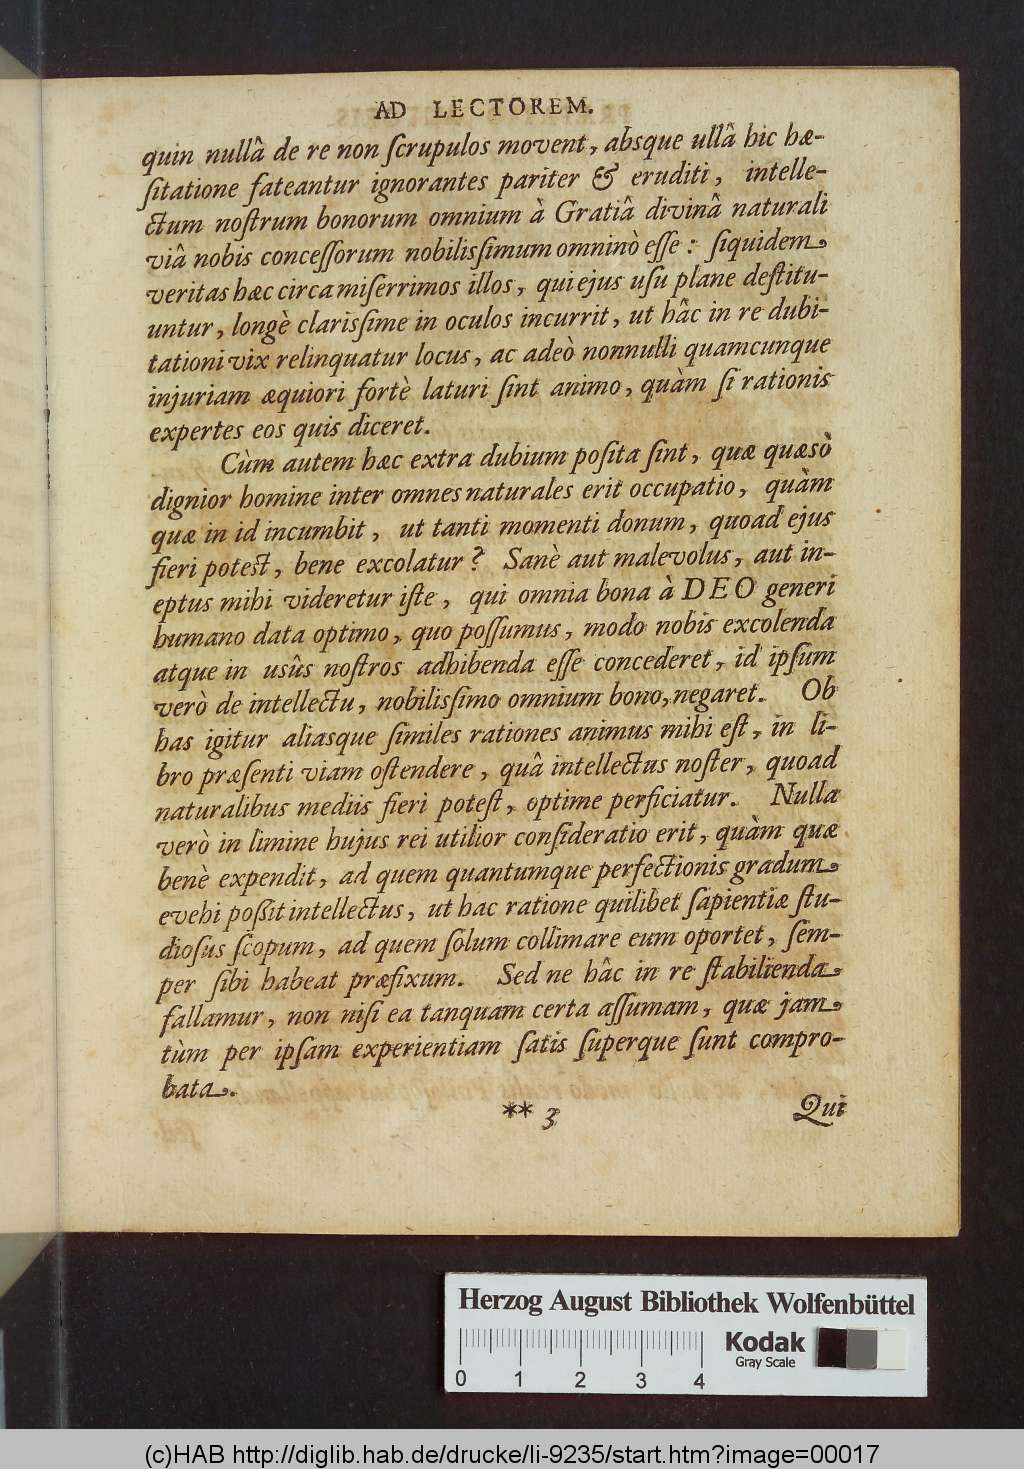 AD LECTOREM.
quin nullâ de re non ſcrupulos movent, absque ullâ hic hæ-
ſitatione fateantur ignorantes pariter & eruditi, intelle-
ctum noſtrum bonorum omnium à Gratiâ divinâ naturali
viâ nobis conceſſorum nobiliſſimum omninò eſſe: ſiquidem
veritas hæc circa miſerrimos illos, qui ejus uſu plane deſtitu-
untur, longè clariſſime in oculos incurrit, ut hâc in re dubi-
tationi vix relinquatur locus, ac adeò nonnulli quamcunque
injuriam æquiori fortè laturi ſint animo, quàm ſi rationis
expertes eos quis diceret.
Cùm autem hæc extra dubium poſita ſint, quæ quæsò
dignior homine inter omnes naturales erit occupatio, quàm
quæ in id incumbit, ut tanti momenti donum, quoad ejus
fieri poteſt, bene excolatur? Sanè aut malevolus, aut in-
eptus mihi videretur iſte, qui omnia bona à DEO generi
humano data optimo, quo poſſumus, modo nobis excolenda
atque in usûs noſtros adhibenda eſſe concederet, id ipſum
verò de intellectu, nobiliſſimo omnium bono, negaret. Ob
has igitur aliasque ſimiles rationes animus mihi eſt, in li-
bro præſenti viam oſtendere, quâ intellectus noſter, quoad
naturalibus mediis fieri poteſt, optime perficiatur. Nulla
verò in limine hujus rei utilior conſideratio erit, quàm quæ
benè expendit, ad quem quantumque perfectionis gradum
evehi poſſit intellectus, ut hac ratione quilibet ſapientiæ ſtu-
dioſus ſcopum, ad quem ſolum collimare eum oportet, ſem-
per ſibi habeat præfixum. Sed ne hâc in re ſtabilienda
fallamur, non niſi ea tanquam certa aſſumam, quæ jam
tùm per ipſam experientiam ſatis ſuperque ſunt compro-
bata.
** 3 Qui
Herzog August Bibliothek Wolfenbüttel
Kodak
Gray Scale
0 1 2 3 4
(c)HAB http://diglib.hab.de/drucke/li-9235/start.htm?image=00017